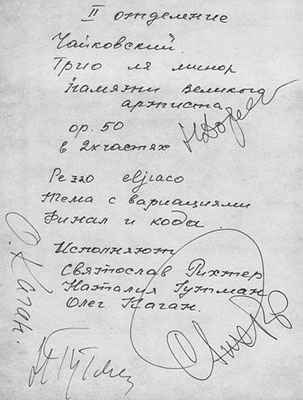 II отделение
Чайковский.
Трио ля минор
Памяти великого
артиста
ор. 50
в 2х частях
Pezzo elegiaco
Тема с вариациями
Финал и кода.
Исполняют
Святослав Рихтер
Наталия Гутман
Олег Каган.
О. Каган.